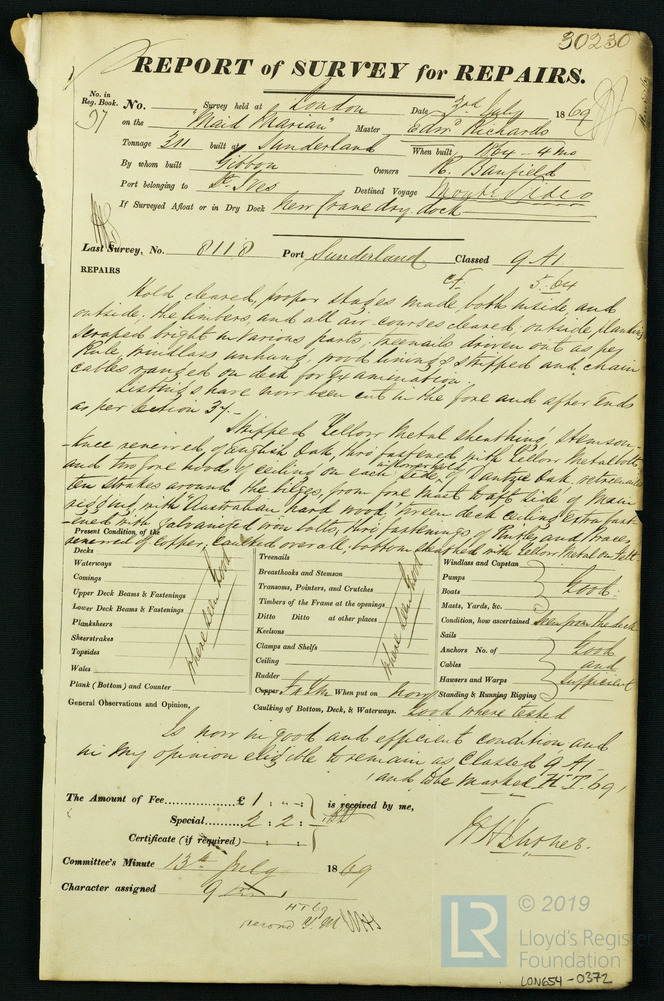 30230
REPORT of SURVEY for REPAIRS.
No. in Reg. Book. No. Survey held at London Date 3rd July 1869
97 on the "Maid Marian" Master Edwd Richards
Tonnage 311 built at Sunderland When built 1864 - 4 mo
By whom built Gibbon Owners R. Banfield
Port belonging to St. Ives Destined Voyage Monte Video
If Surveyed Afloat or in Dry Dock New Crane dry dock
Last Survey, No. 8118 Port Sunderland Classed 9 A1
REPAIRS 5. 64
Hold cleared, proper stages made both inside and
outside, the limbers and all air courses cleared, outside planking
scraped bright in various parts, treenails driven out as per
Rule, windlass unhung, wood linings stripped and chain
cables ranged on deck for Examination.
Listings have now been cut in the fore and after Ends
as per Section 37.-
Stripped Yellow Metal sheathing, Stemson
-knee renewed, of English Oak, two fastened with Yellow Metal bolts,
and two fore hoods of ceiling on each side, in lower hold of Dantzic Oak,
ten strakes around the bilges, from fore Mast to aft side of Main
rigging, with "Australian hard wood," 'tween deck ceiling extra fast
-ened with Galvanized iron bolts, two fastenings of Pintles and braces
renewed of copper, caulked all over, bottom sheathed with Yellow Metal on Felt.
Present Condition of the
Decks
Waterways
Comings
Upper Deck Beams & Fastenings
Lower Deck Beams & Fastenings
Planksheers
Sheerstrakes
Topsides
Wales
Plank (Bottom) and Counter
where seen Good
Treenails
Breasthooks and Stemson
Transoms, Pointers, and Crutches
Timbers of the Frame at the openings
Ditto Ditto at other places
Keelsons
Clamps and Shelfs
Ceiling
Rudder
Copper When put on now
where seen Good
Windlass and Capstan
Pumps
Boats
Masts, Yards, &c.
Good.
Condition, how ascertained Seen from the deck
Sails
Anchors No. of
Cables
Hawsers and Warps
Standing & Running Rigging
Good
and
sufficient
General Observations and Opinion,
Caulking of Bottom, Deck, & Waterways. Good where tested
Is now in good and efficient condition and
in my opinion eligible to remain as Classed 9 A1 -
and to be marked H.T. 69.
The Amount of Fee £ 1 : - : - is received by me,
Special 2 : 2 : -
Certificate (if required)
Committee's Minute 13th July 1869
Character assigned 9
HT 69
© 2019
LR
Lloyd's Register
Foundation
LON654-0372